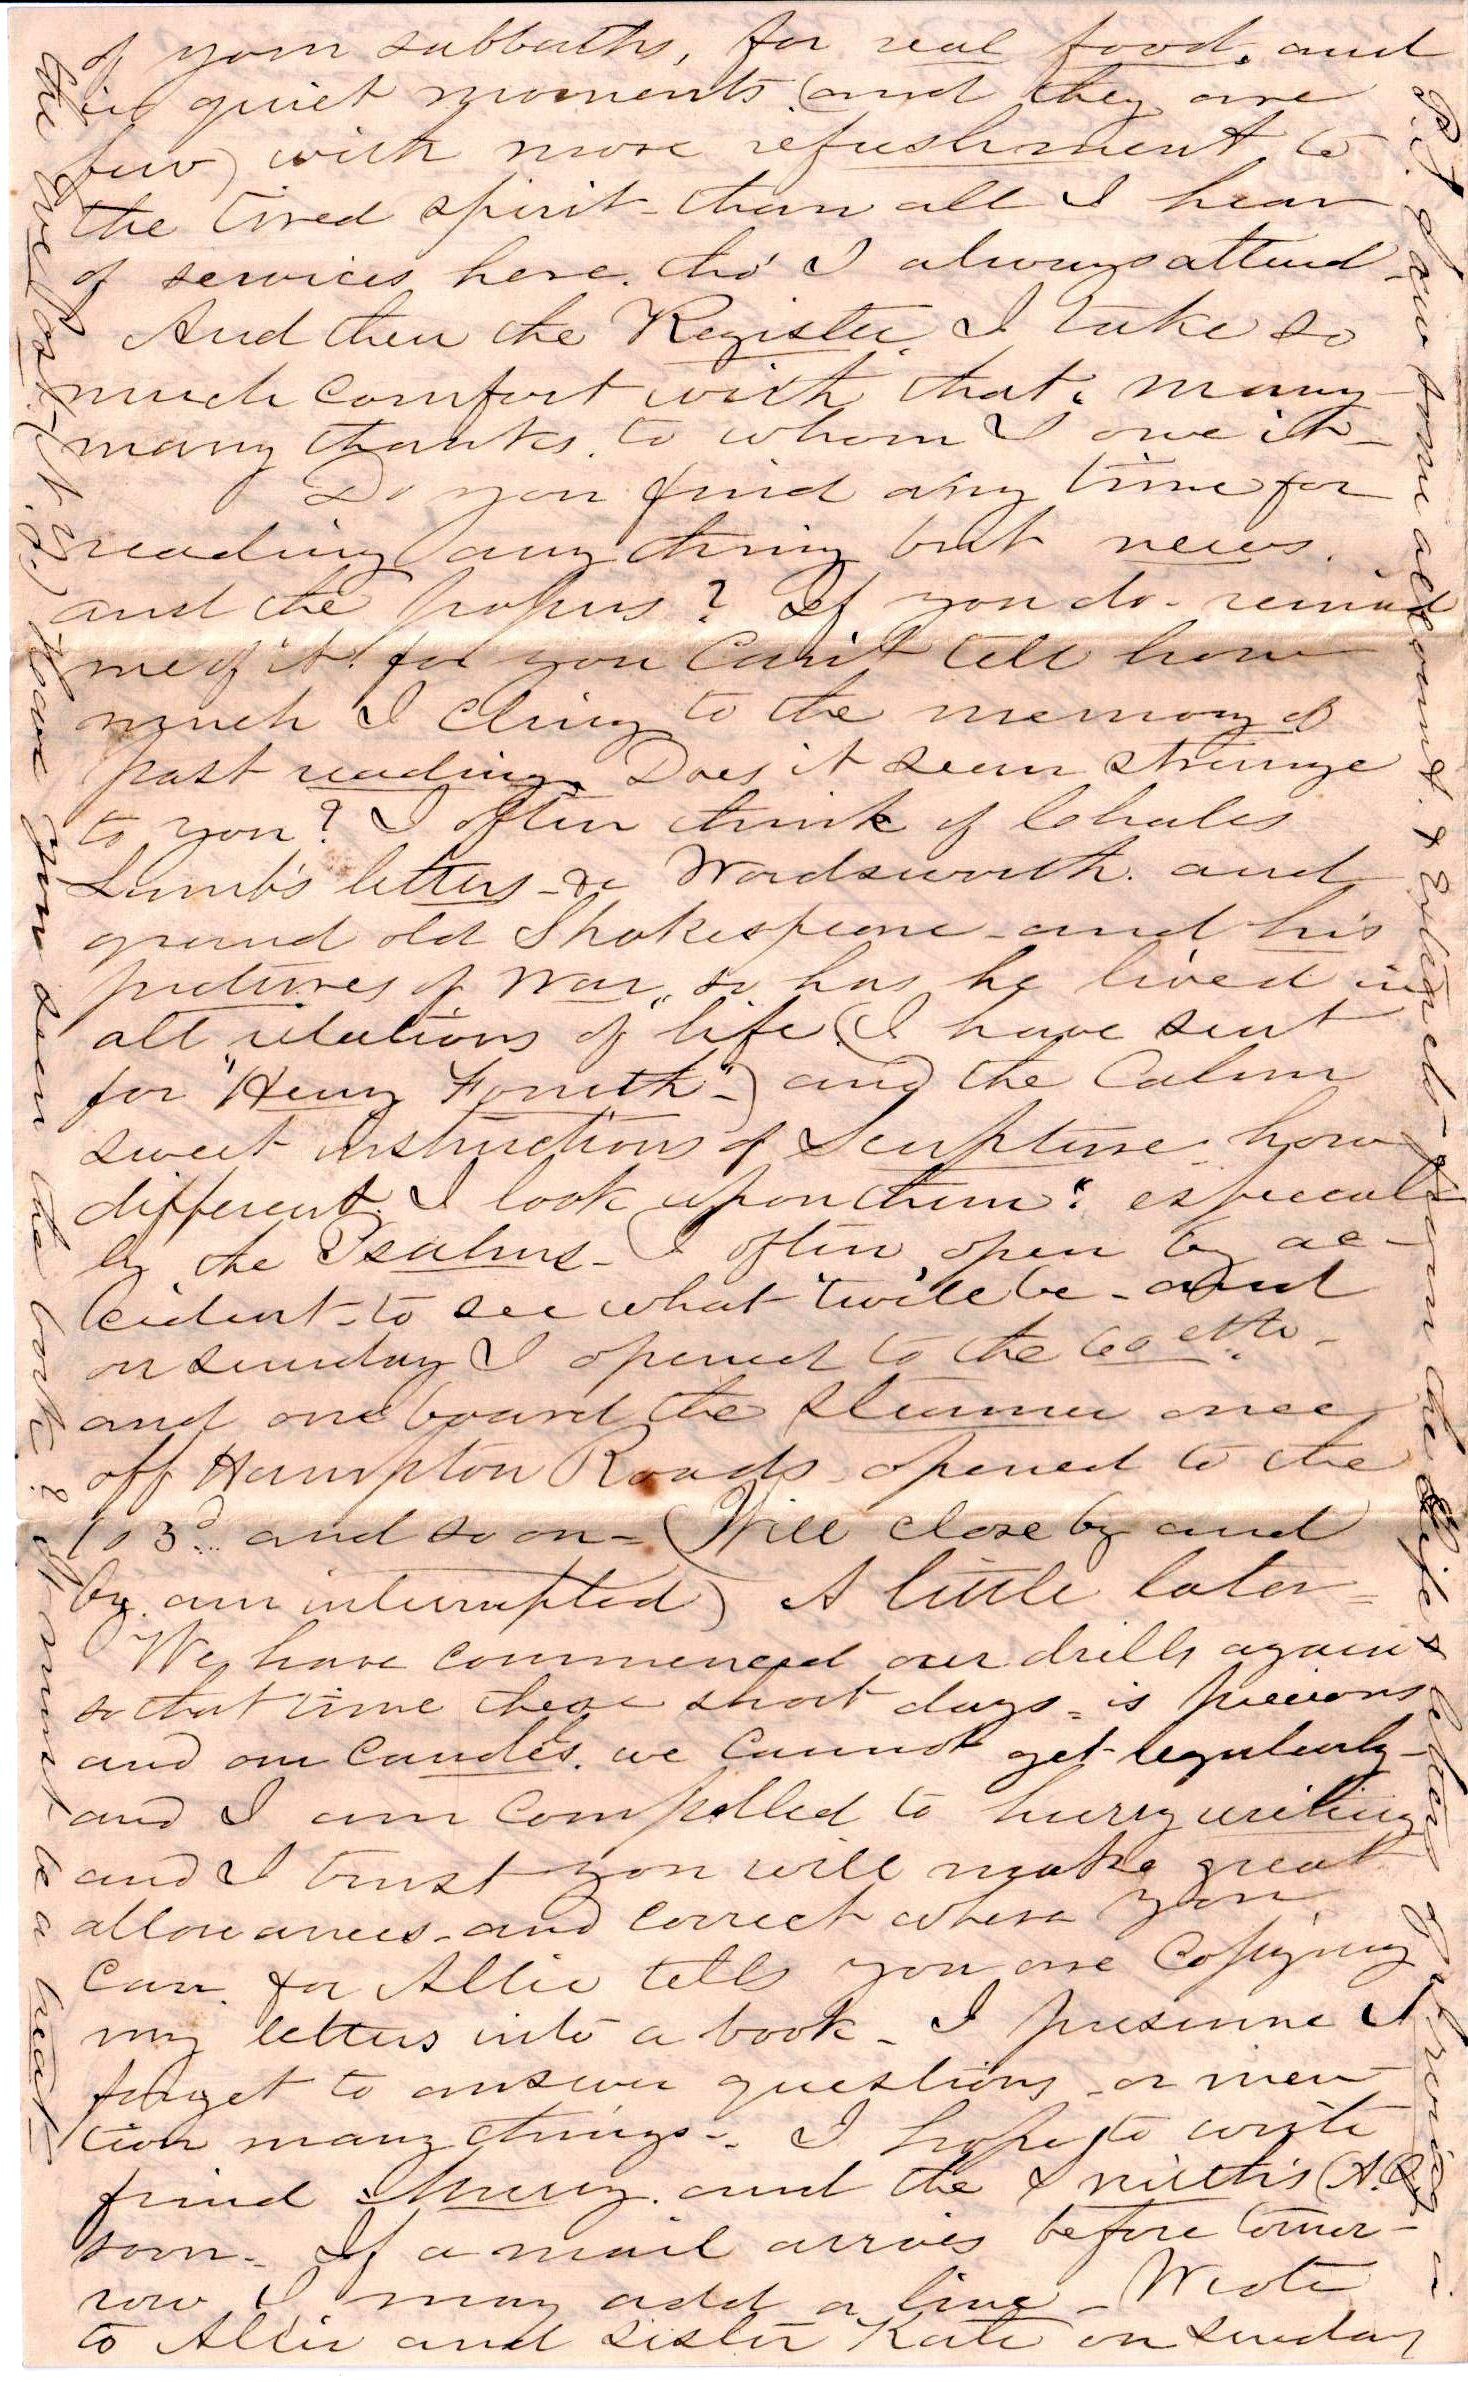 of your sabbaths, for real food, and
in quiet moments (and they are
few) with more refreshment to
the tired spirit - than all I hear
of services here. tho' I always attend -
And then the Register. I take so
much comfort with that. many
many thanks. to whom I owe it -
Do you find any time for
reading any thing but news.
and the papers? If you do - remind
me of it. for you can't tell how
much I cling to the memory of
past reading. Does it seem strange
to you? I often think of Chales
Lamb's letters - & Wordsworth. and
grand old Shakespeare - and his
pictures of war, so has he lived in
all relations of life. (I have sent
for "Henry Fourth" -) and the calm
sweet instructions of Scripture. how
different I look upon them: especial
ly the Psalms - I often open by ac-
cident - to see what 'twill be - and
on sunday I opened to the 60th. -
and on board the Steamer once
off Hampton Roads opened to the
103d and so on - (Will close by and
by. am interrupted) A little later =
We have commenced our drills again
so that time these short days - is precious
and our candles. we cannot get regularly -
and I am compelled to hurry writing
and I trust you will make great
allowances - and correct where you
can. for Allie tells you are copying
my letters into a book - I presume I
forget to answer questions - or men
tion many things - . I hope to write
friend and the Smith's (A. )
soon - If a mail arrives before tomor-
row I may add a line - Wrote
to Allie and sister Kate on sunday
P.S. I saw some accounts. & Extracts - from the Life & letters of Irving in
the Eve. Post - (N.Y.) have you seen the book? it must be a treat -